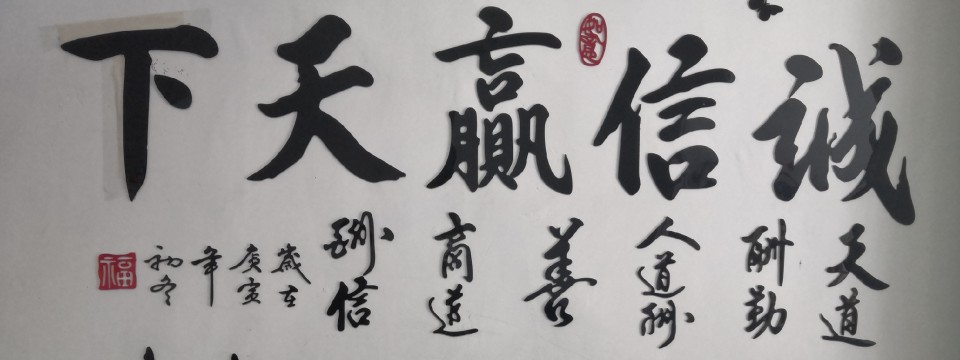 誠信贏天下
天道
酬勤
人道酬
善
商道
酬信
歲在
庚寅
年
初冬
福